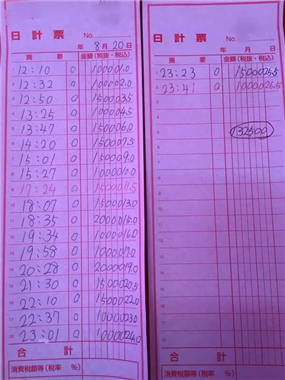 日計票 No.
年 8月 20日
摘要 金額(税抜・税込)
12:10 0 10000 1.0
12:32 0 10000 2.0
12:50 0 15000 3.5
13:25 0 10000 4.5
13:47 0 15000 6.0
14:20 0 15000 7.5
15:01 0 15000 9.0
15:27 0 10000 10.0
17:24 0 15000 11.5
18:07 0 15000 13.0
18:35 0 20000 15.0
19:34 0 10000 16.0
19:58 0 10000 17.0
20:28 0 20000 19.0
21:30 0 15000 20.5
22:10 0 15000 22.0
22:37 0 10000 23.0
23:01 0 10000 24.0
合計
消費税額等(税率 %)
日計票 No.
年 月 日
摘要 金額(税抜・税込)
23:23 0 15000 25.5
23:41 0 10000 26.5
132500
合計
消費税額等(税率 %)